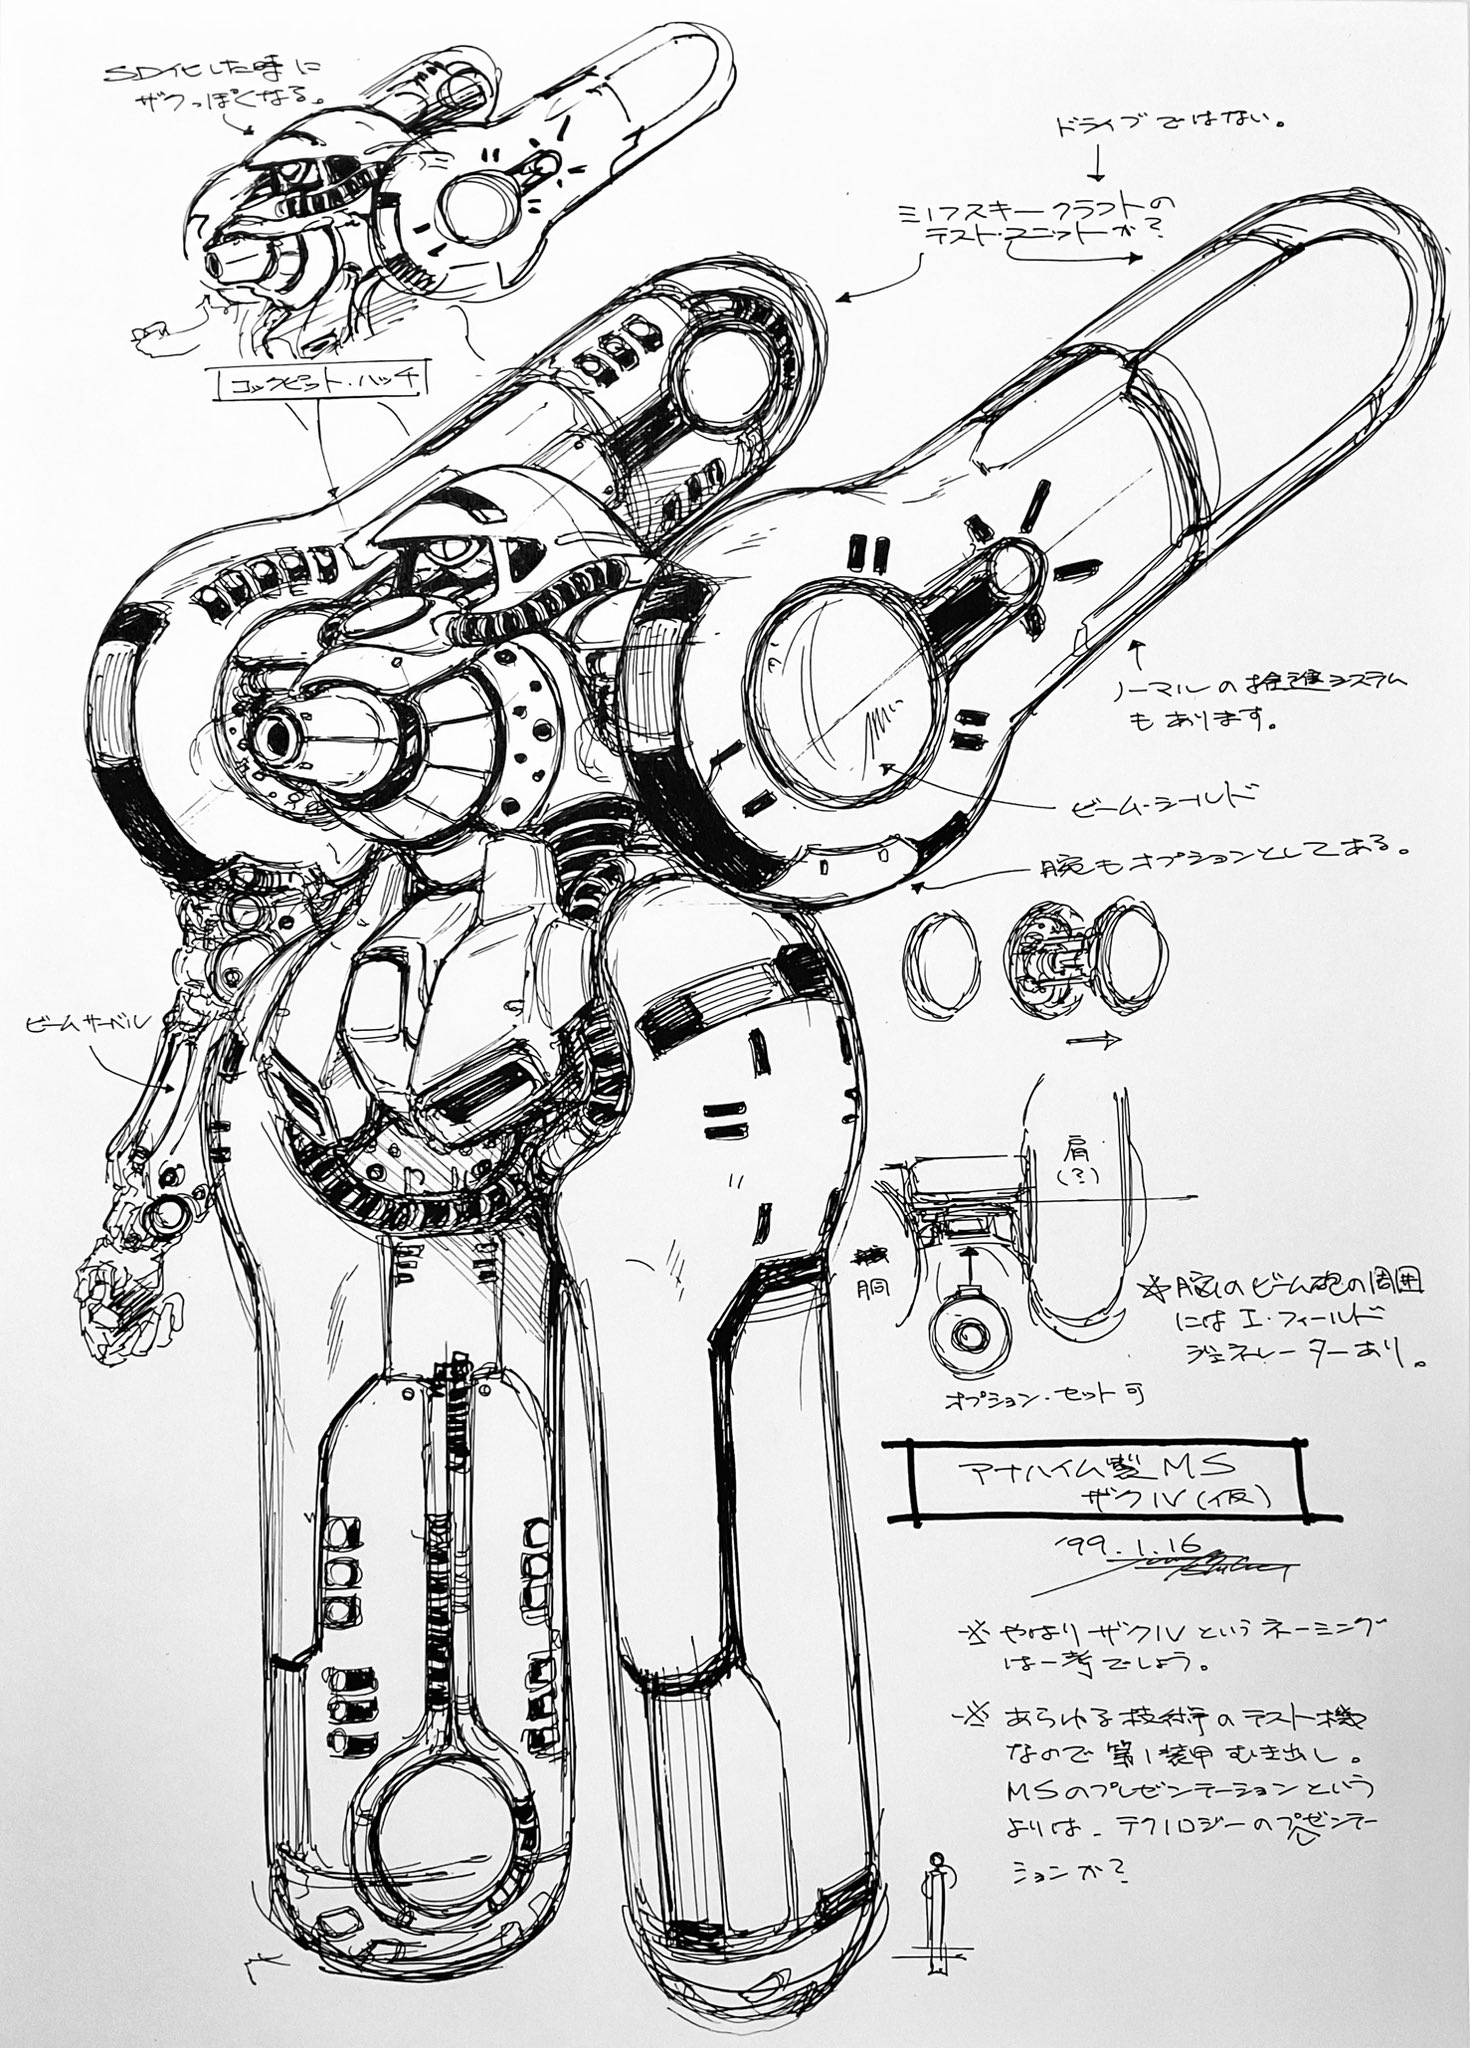 SD化した時に
ザクっぽくなる。
ドライブではない。
ミノフスキークラフトの
テスト・ユニットか?
コックピット・ハッチ
ノーマルの推進システム
もあります。
ビーム・シールド
腕もオプションとしてある。
ビームサーベル
肩
(?)
胴
オプション・セット可
※腕のビーム砲の周囲
にはI・フィールド
ジェネレーターあり。
アナハイム製MS
ザクIV(仮)
'99.1.16
※やはりザクIVというネーミング
は一考でしょう。
※あらゆる技術のテスト機
なので第1装甲むき出し。
MSのプレゼンテーションという
よりは、テクノロジーのプレゼンテー
ションか?